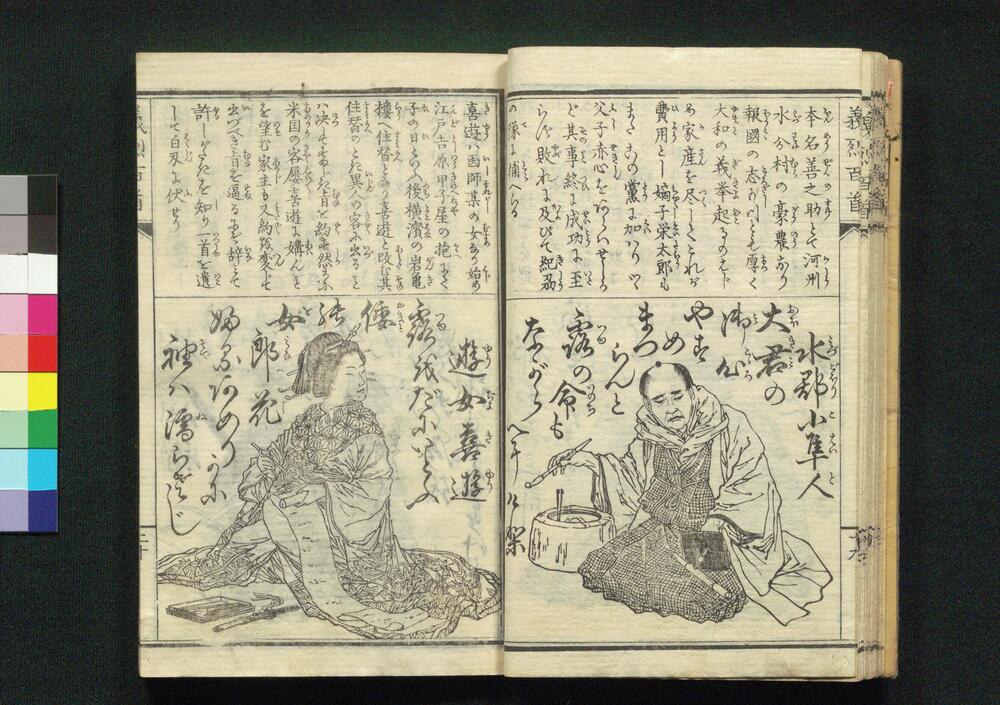 義烈百首
本名善之助とて河州
水分村の豪農なり
報國の志有りしとも厚く
大和の義挙起るのはじ
め家産を尽してこれが
費用とし嫡子栄太郎も
またこの黨に加はりつゝ
父子赤心をあらはせしか
ど其事終に成功に至
らず敗れに及びて紀州
の藩に捕へらる
水郡小隼人
大君の
御心
やすめ
まつ
らんと
露の命も
ながらへ
十九
喜遊ハ図師某の女なり始め
江戸吉原甲子屋の抱にて
子の日といふ後横濱の岩亀
樓へ住替となり喜遊と改む其
住替のとき異人の客ハ出る
ハ決してせまじき旨を約せ
米国の客屡喜遊に媾んと
を望む家主も又約を変じて
出づべき旨を逼るにぞ辞して
許しがたきを知り一首を遺
して白刃に伏せり
遊女喜遊
露をだにいとふ
倭の
女郎花
ふるあめりかに
袖ハ濡らさじ
義烈百首
二十